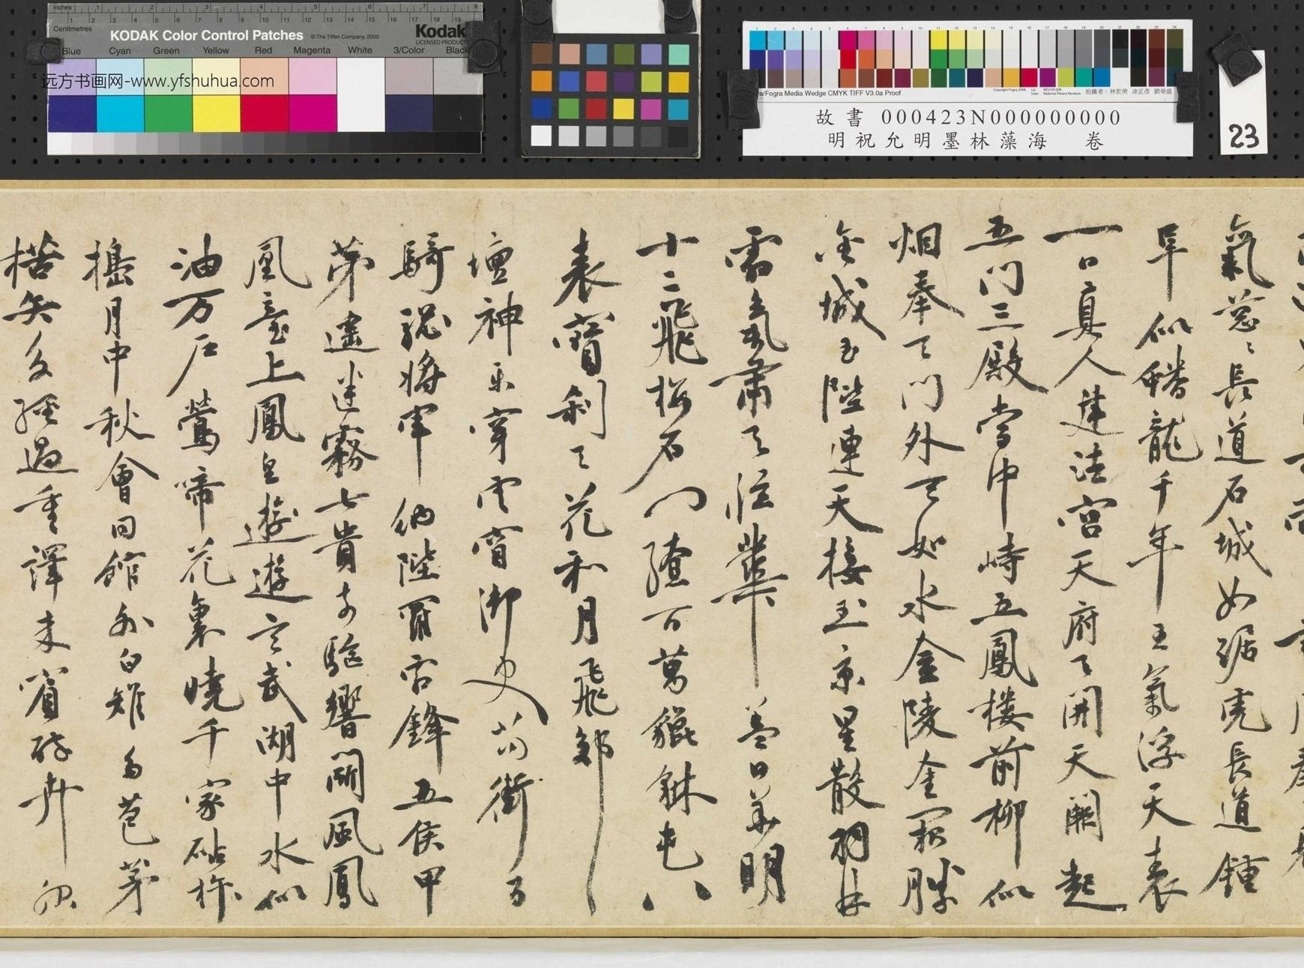 inches
Centimetres
KODAK Color Control Patches
© The Tiffen Company, 2000
Kodak
LICENSED PRODUCT
Blue Cyan Green Yellow Red Magenta White 3/Color Black
远方书画网-www.yfshuhua.com
/Fogra Media Wedge CMYK TIFF V3.0a Proof
故書 000423N000000000
明祝允明墨林藻海 卷
23
氣葱〻長道石城如踞虎長道鍾
阜似蟠龍千年王氣浮天表
一日真人建法宮天府天開天闕起
五门三殿當中峙五鳳楼前柳似
烟奉天门外天如水金陵金闕勝
金城玉陛連天接玉京星散羽林
雷氣肅天低華蓋日華明
十二飛橋石门百萬貔貅屯八
表寶刹天花和月飛郊
壇神乐穿雲霄御史街
騎驄將軍纳陛鋒五侯甲
第建迷霧七貴驅響閗風鳳
凰臺上鳳皇遊遊玄武湖中水似
油万户鶯啼花裏曉千家砧杵
擣月中秋會同館外白雉苞茅
楛矢經過重譯来賓